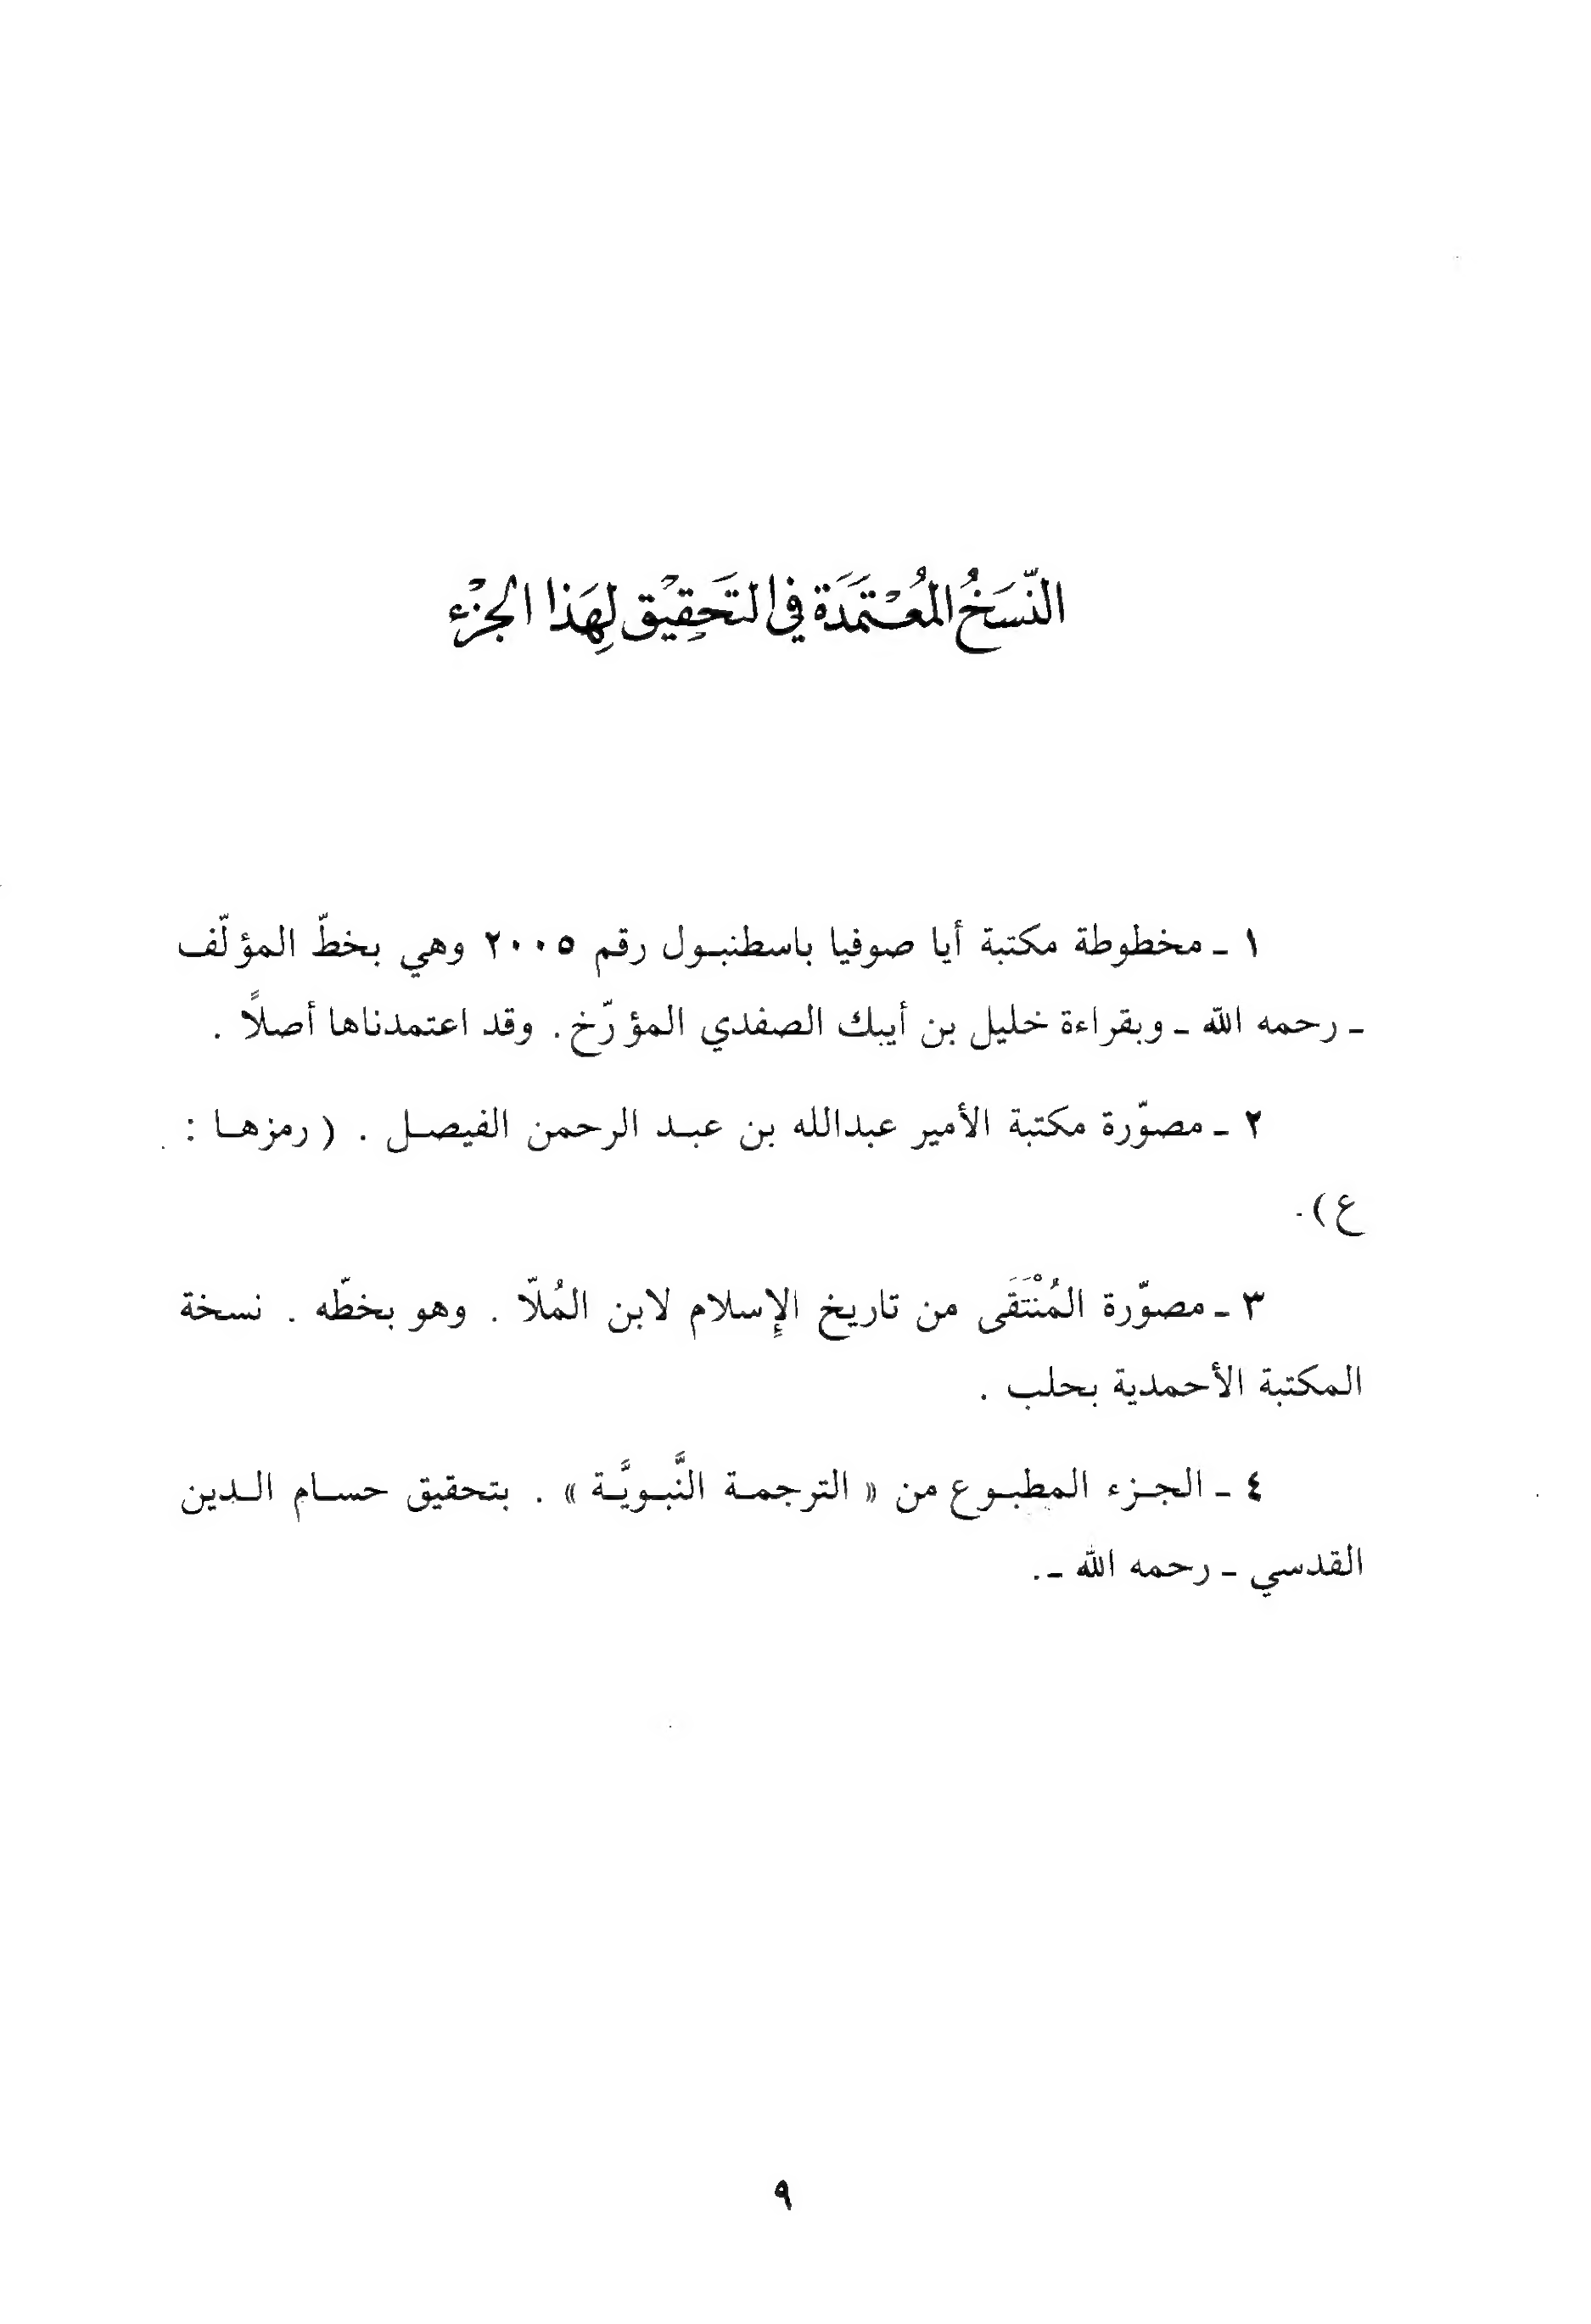 النّسَخُ المُعْتَمَدَة في التَحقِيْق لِهَذا الجزْء
١ ـ مخطوطة مكتبة أيا صوفيا باسطنبـول رقم ٢٠٠٥ وهي بخطّ المؤلّف
ـ رحمه الله ـ وبقراءة خليل بن أيبك الصفدي المؤرّخ. وقد اعتمدناها أصلاً .
٢ ـ مصوّرة مكتبة الأمير عبدالله بن عبـد الرحمن الفيصـل . ( رمزهـا :
ع ) .
٣ ـ مصوّرة المُنْتَقَى من تاريخ الإسلام لابن المُلّا . وهو بخطّه . نسخة
المكتبة الأحمدية بحلب .
٤ ـ الجـزء المطبـوع من « الترجمـة النَّبـويَّـة » . بتحقيق حسـام الـدين
القدسي ـ رحمه الله ـ.
٩